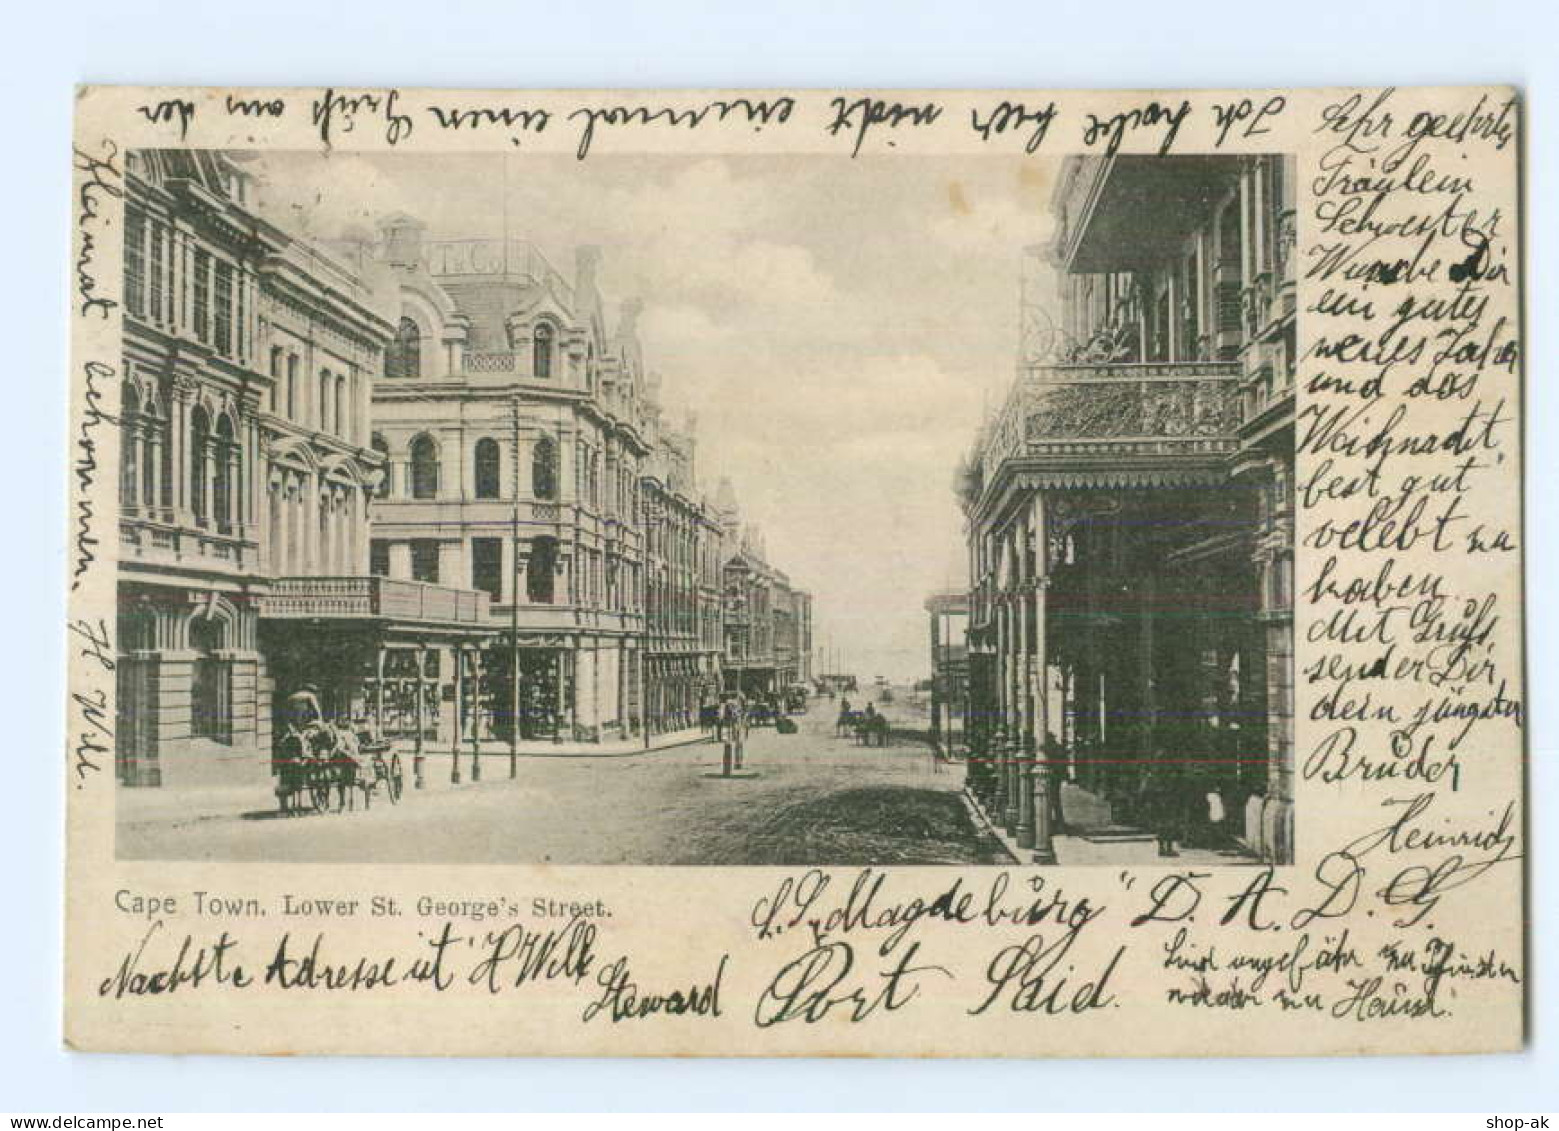 Sehr geehrte
Fräulein
Schwester
Wünsche Dir
ein gutes
neues Jahr
und das
Weihnacht,
fest gut
velebt zu
haben.
Mit Gruß,
sendet Dir
dein jüngster
Bruder
Heinrich
Cape Town. Lower St. George's Street.
S. S. „Magdeburg" D. A. D. G.
Nachste Adresse ist H Will
Steward Port Said.
Sind ungefähr zu Pfinsten
wieder zu Hause.
Ich habe hier nicht einmal einen Gruß aus der
Heimat bekommen. H. Will.
shop-ak